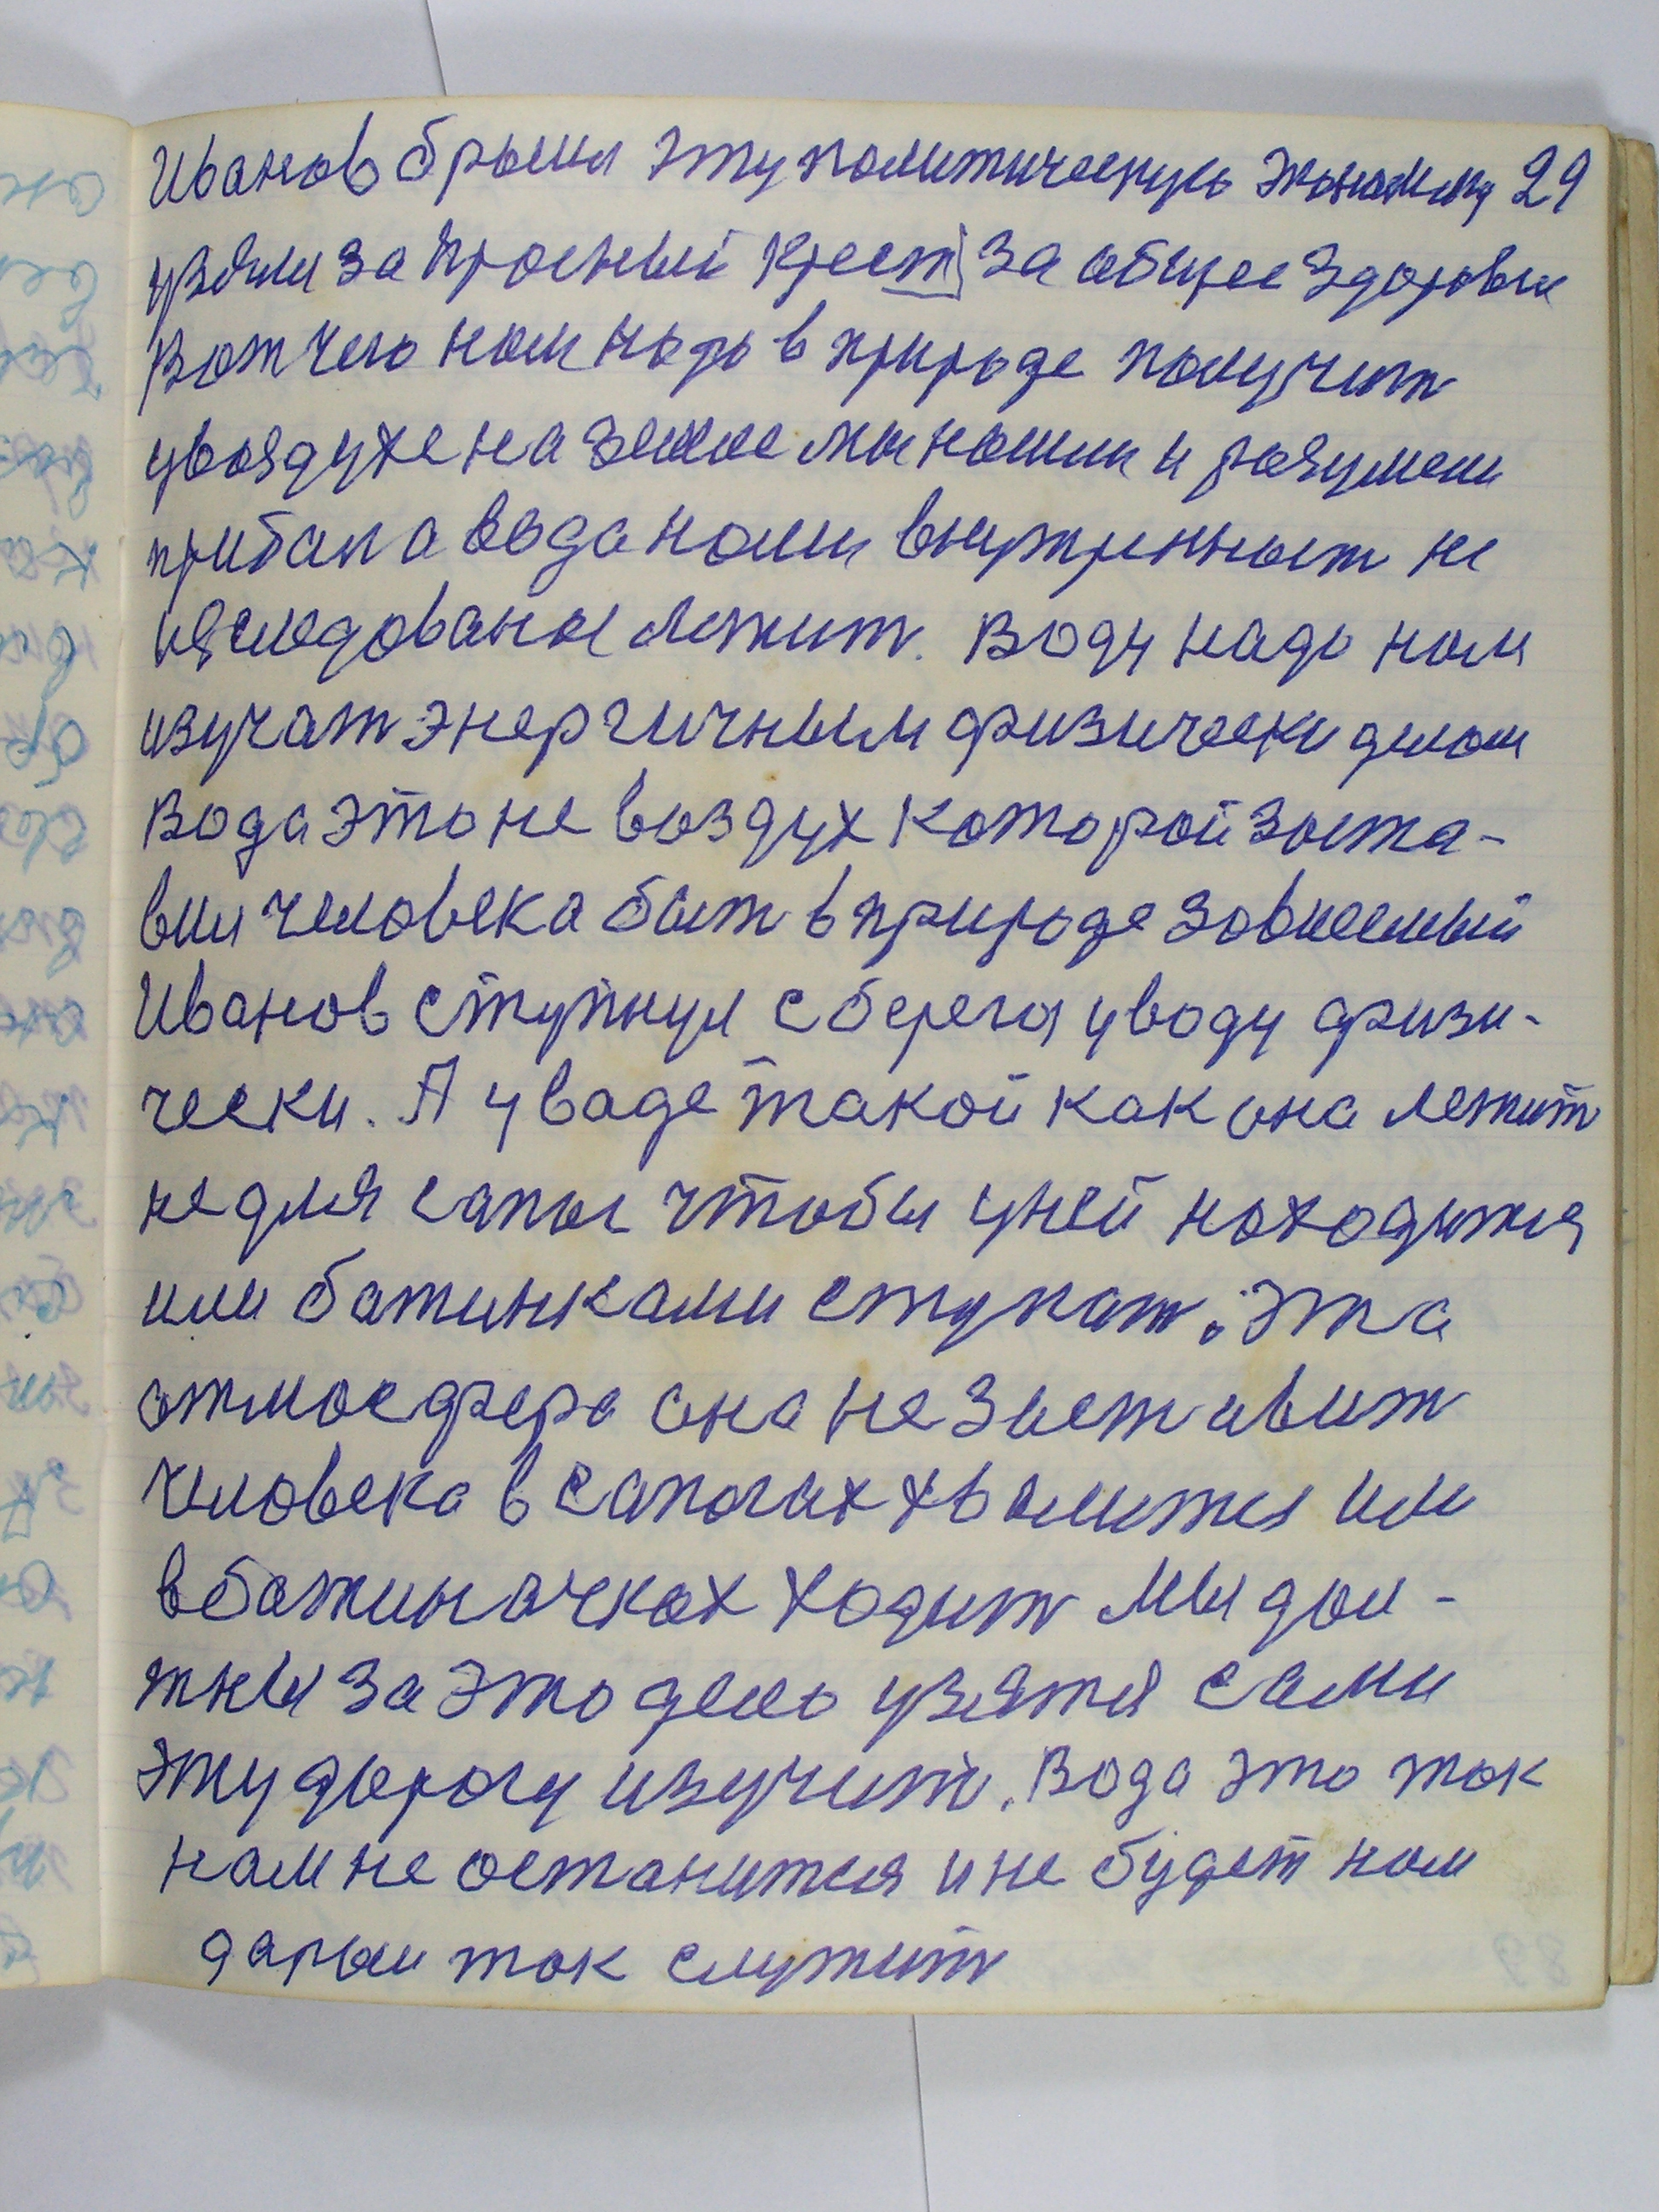 Иванов брысил эту политическую экономику 29
узялси за красный крест за общее здоровье
Вот чего нам надо в природе получит
у воздухе на земле мы нашли и разумом
прибал а вода наши внутренност не
изследованое лежит. Воду надо нам
изучат энергичным физически делом
Вода это не воздух которой заста-
вил человека быт в природе зависемый
Иванов ступнул с берега у воду физи-
чески. А у ваде такой как она лежит
не для сапог чтобы у ней находится
или батинками ступат. Эта
атмосфера она не заставит
человека в сапогах хвалится или
в батиночках ходит Мы дол-
жны за это дело узятся сами
эту дорогу изучит. Вода это так
нам не останится и не будет нам
даром так служит